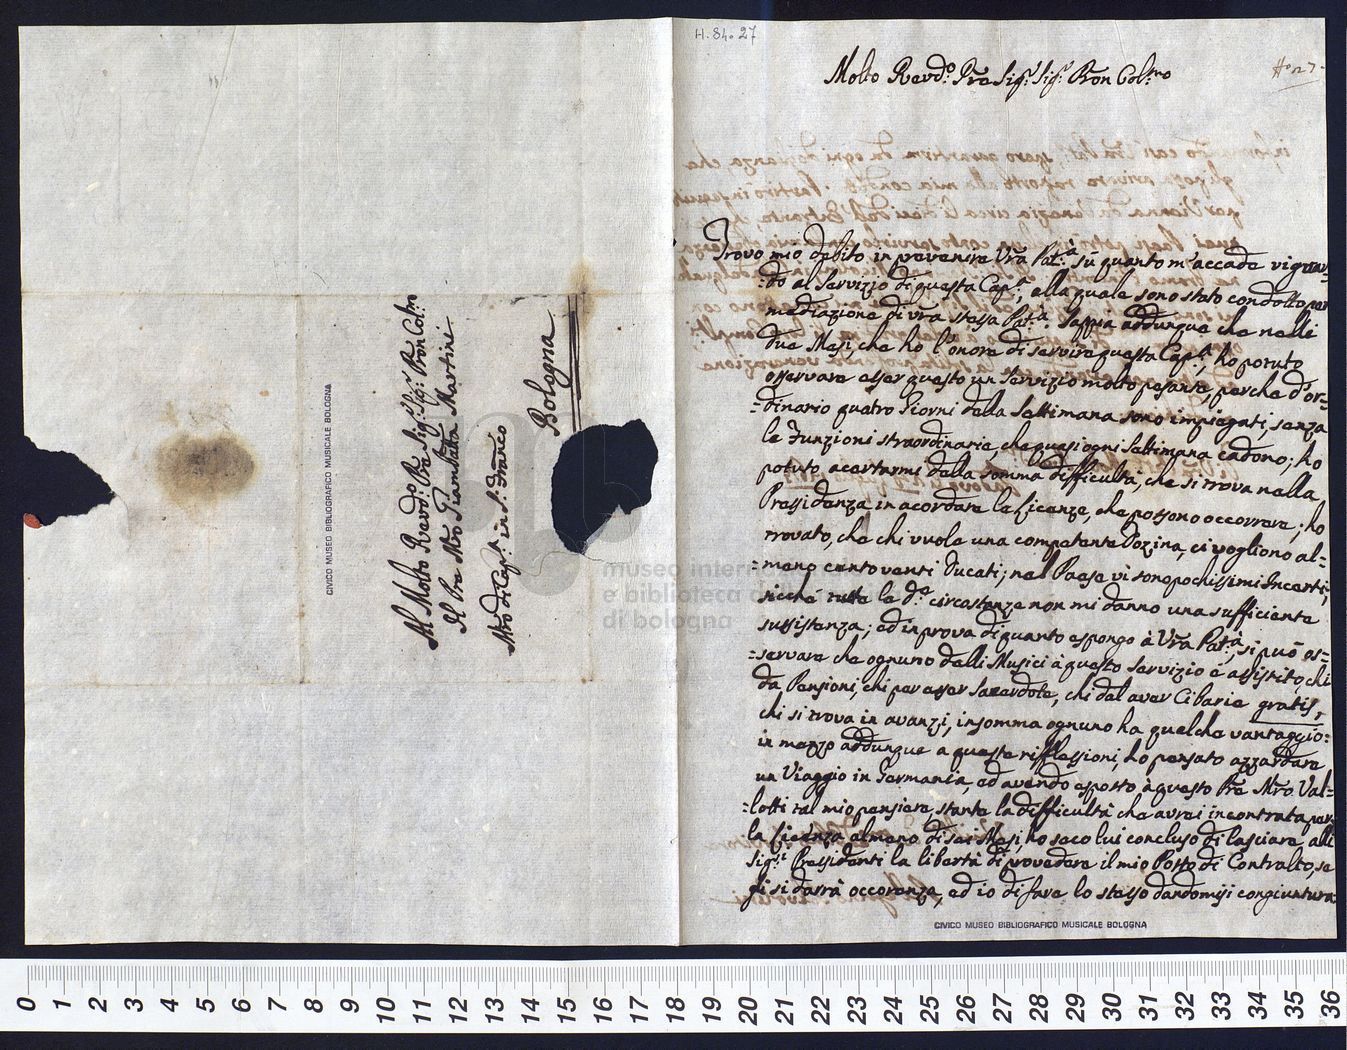 H. 84. 27
H.o 27.
Molto Revd.o Pre Sig.r Sig.r Pron Col.mo
Trovo mio debito in prevenire Vrā Pat.tà sù quanto m'accade riguar=
=do al Servizio di questa Cap.a, alla quale sono stato condotto per
mediazione di vrā stessa Pat.tà. Sappia addunque che nelli
due Mesi, che ho l'onore di servire questa Cap.a, ho potuto
osservare esser questo un Servizio molto pesante, perche d'or=
=dinario quatro Giorni della Settimana sono impiegati, senza
le Funzioni straordinarie, che quasi ogni Settimana cadono; ho
potuto acertarmi della somma difficultà, che si trova nella
Pressidenza in acordare le Licenze, che possono occorrere; ho
trovato, che chi vuole una competente Dozina, ci vogliono al=
=meno cento venti Ducati; nel Paese vi sono pochissimi Incerti,
sicchè tutte le d.e circostanze non mi danno una sufficiente
sussistenza; ed in prova di quanto espongo à Vrā Pat.tà, si può os=
=servare che ognuno delli Musici à questo Servizio è assistito, chi
da Pensioni, chi per esser Sacerdote, chi dal aver Cibarie gratis,
chi si trova in avanzi, insomma ognuno ha quelche vantaggio:
in mezzo addunque a queste rifflessioni, ho pensato azzardare
un Viaggio in Germania, ed avendo esposto à questo Pre Mro Val=
=lotti tal mio pensiere, stante la difficultà che avrei incontrata per
la Licenza almeno di sei Mesi, ho seco lui concluso di lasciare alli
Sig.ri Pressidenti la libertà di provedere il mio Posto di Contralto, se
gli si darrà occorenza, ed io di fare lo stesso dandomisi congiuntura
Al Molto Revd.o Pre Sig.r Sig.r Pron Col.mo
Il Pre Mro Giambatta Martini
Mro di Cap.a in S. Franco
Bologna
CIVICO MUSEO BIBLIOGRAFICO MUSICALE BOLOGNA
CIVICO MUSEO BIBLIOGRAFICO MUSICALE BOLOGNA
museo internazionale
e biblioteca della musica
di bologna
0 1 2 3 4 5 6 7 8 9 10 11 12 13 14 15 16 17 18 19 20 21 22 23 24 25 26 27 28 29 30 31 32 33 34 35 36